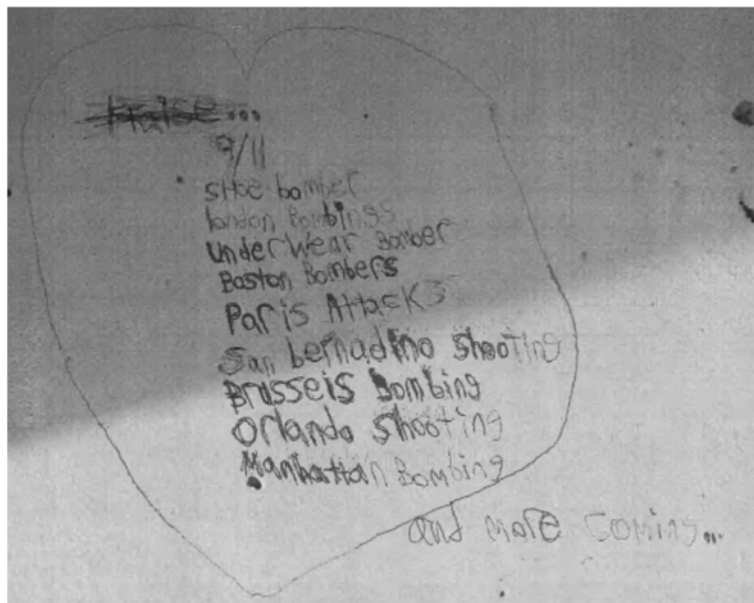 Praise...
9/11
sHoe bomber
london Bombings
underWear Bomber
Boston Bombers
Paris Attacks
San bernadino shooting
Brusseis Bombing
Orlando shooting
Manhattan Bombing
and more coming...